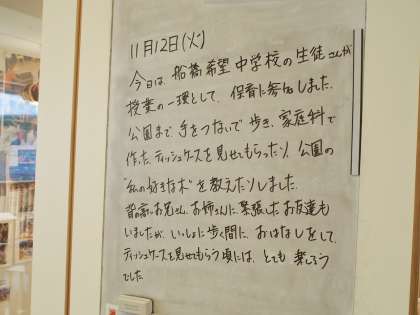 11月12日(火)
今日は、船橋希望中学校の生徒さんが
授業の一環として、保育に参加しました。
公園まで、手をつないで歩き、家庭科で
作ったティッシュケースを見せてもらったり、公園の
"私の好きな木"を教えたりしました。
背の高いお兄さん、お姉さんに、緊張したお友達も
いましたが、いっしょに歩く間に、おはなしをして、
ティッシュケースを見せてもらう頃には、とても楽しそう
でした